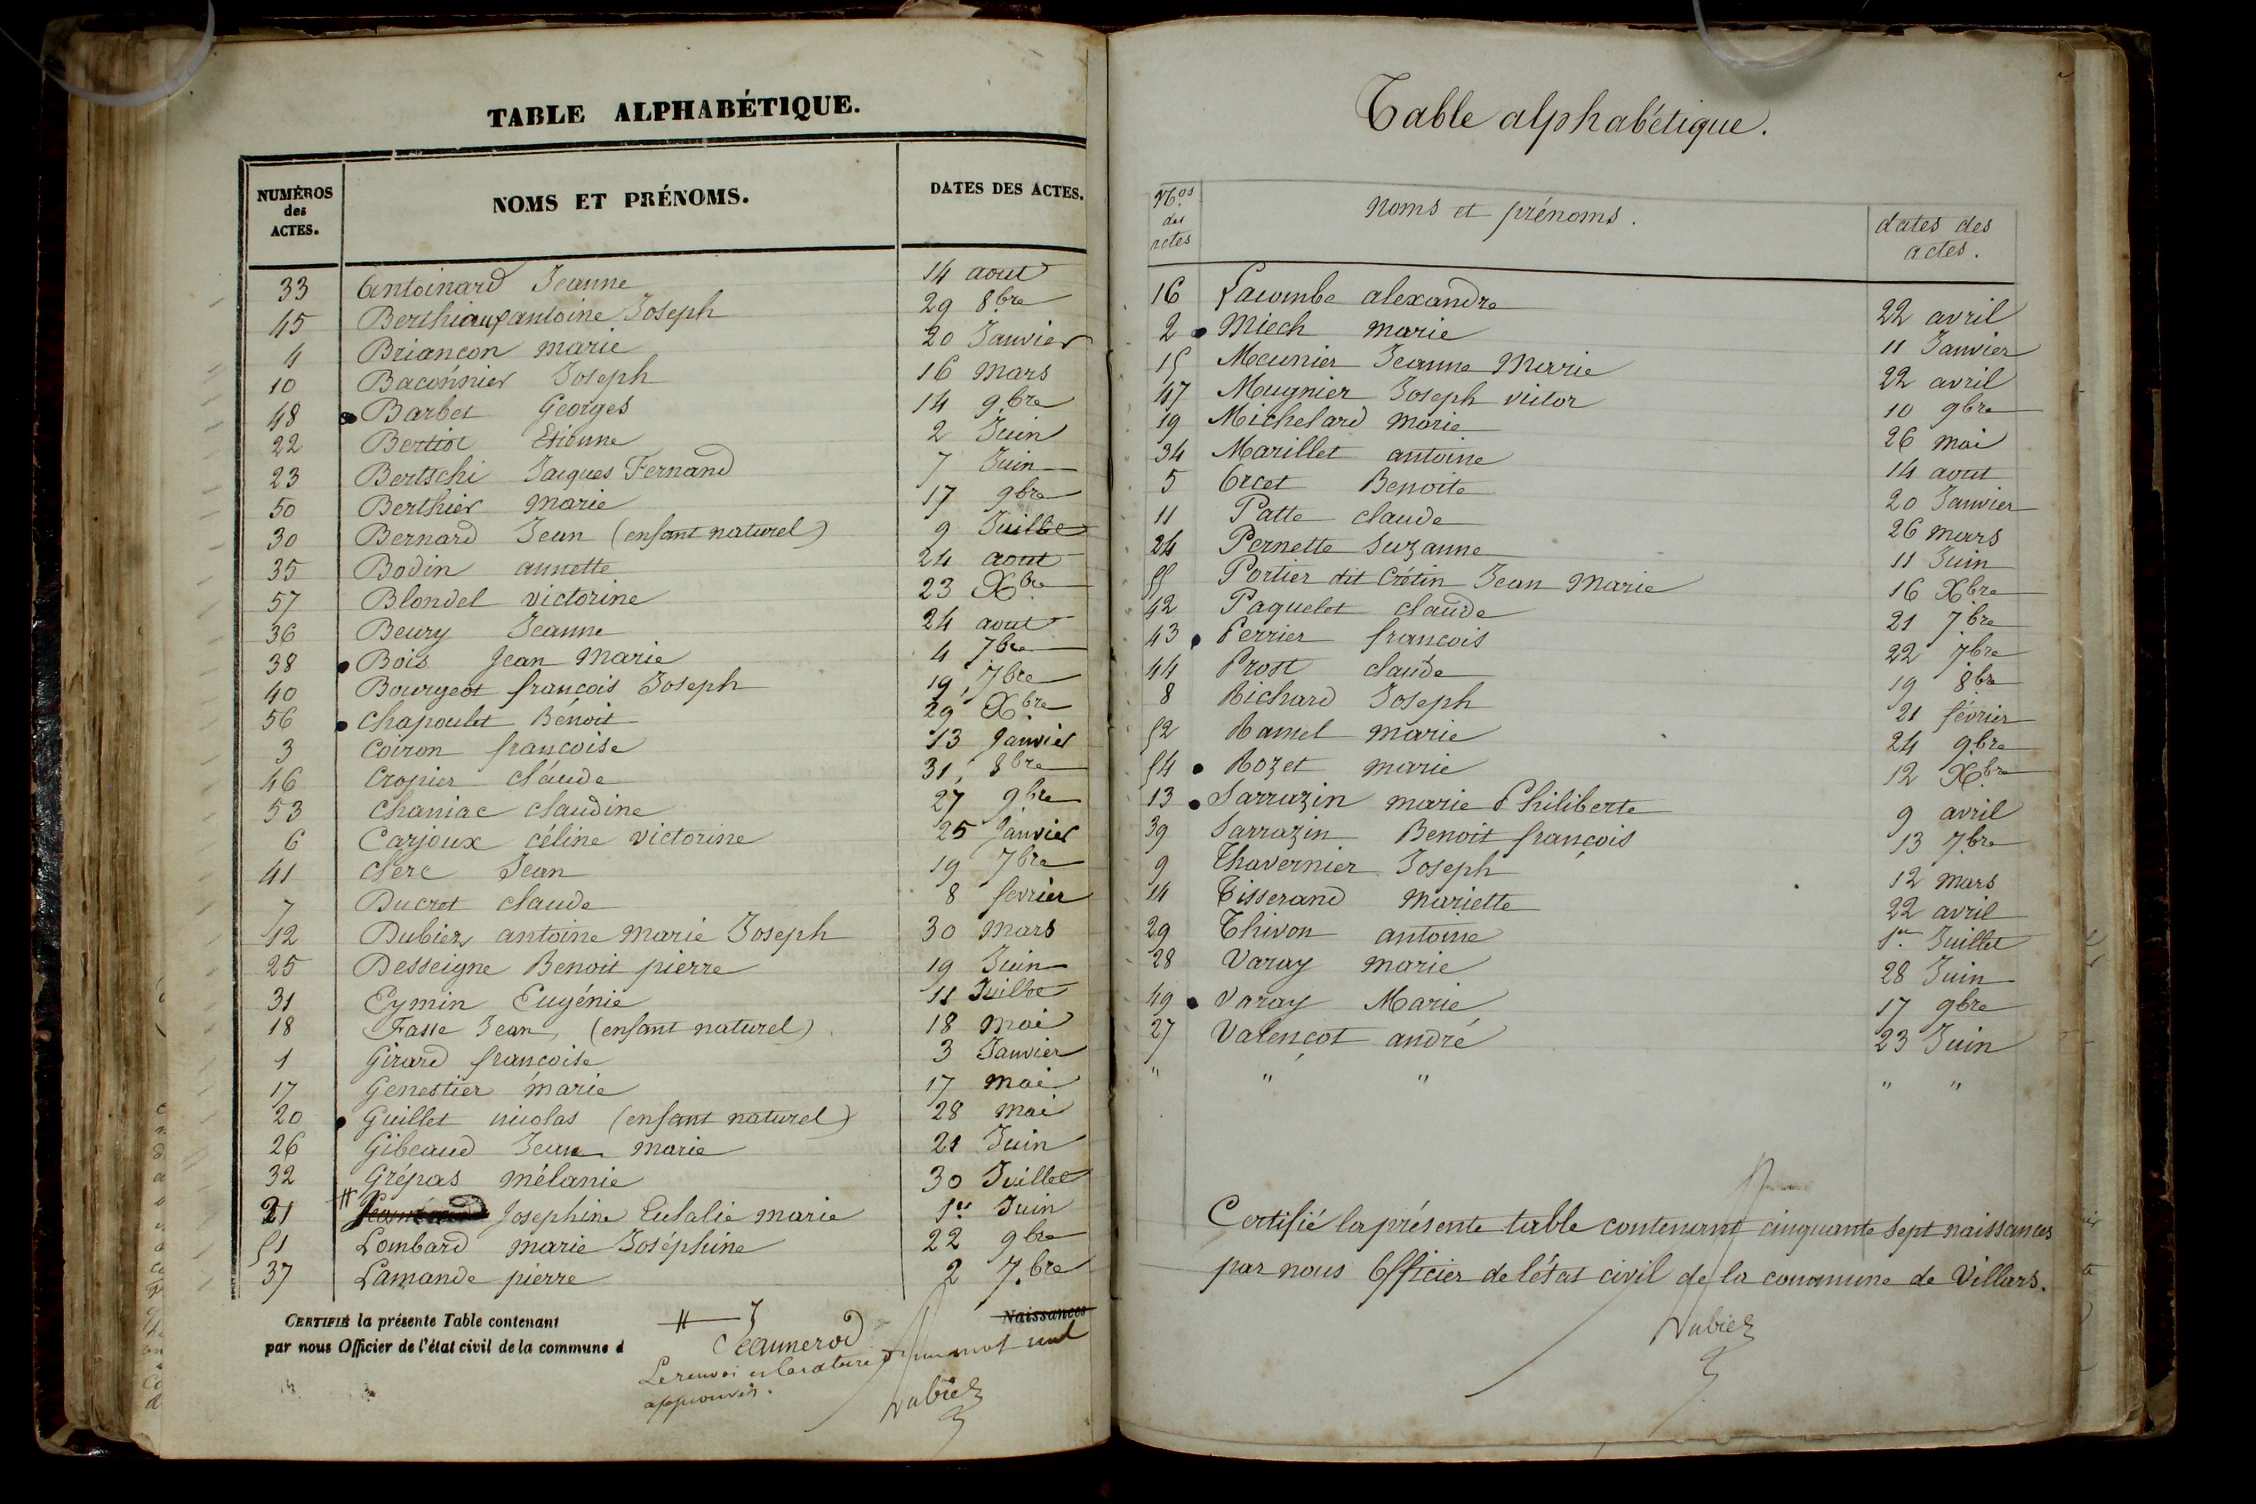 TABLE ALPHABÉTIQUE.
NUMÉROS
des
ACTES.
NOMS ET PRÉNOMS.
DATES DES ACTES.
33 Antoinard Jeanne 14 aout
45 Berthiaux antoine Joseph 29 8bre
4 Briançon marie 20 Janvier
10 Baconnier Joseph 16 mars
48 Barbet Georges 14 9bre
22 Bertiot Etienne 2 Juin
23 Bertschi Jacques Fernand 7 Juin
50 Berthier marie 17 9bre
30 Bernard Jean (enfant naturel) 9 Juillet
35 Bodin annette 24 aout
57 Blondel victorine 23 Xbre
36 Beury Jeanne 24 aout
38 Bois Jean Marie 4 7bre
40 Bourgeot françois Joseph 19 7bre
56 Chapoulet Bénoit 29 Xbre
3 Coiron françoise 13 Janvier
46 Cropier claude 31 8bre
53 Chaniac claudine 27 9bre
6 Carjoux céline victorine 25 Janvier
41 Clerc Jean 19 7bre
7 Ducrot claude 8 fevrier
12 Dubiez antoine marie Joseph 30 mars
25 Desseigne Benoit pierre 19 Juin
31 Eymin Eugénie 11 Juillet
18 Fasse Jean (enfant naturel) 18 mai
1 Girard françoise 3 Janvier
17 Genestier marie 17 mai
20 Guillet nicolas (enfant naturel) 28 mai
26 Gibeaud Jean marie 21 Juin
32 Grépas mélanie 30 Juillet
21 # Josephine Eulalie marie 1er Juin
51 Lombard marie Joséphine 22 9bre
37 Lamande pierre 2 7bre
CERTIFIÉ la présente Table contenant Naissances
par nous Officier de l'état civil de la commune d
# Jeannerod
Le renvoi et la rature d'un mot nul
approuvés.
Dubiez
Table alphabétique.
Nos
des
actes
Noms et prénoms.
dates des
actes.
16 Lacombe alexandre 22 avril
2 Miech marie 11 Janvier
15 Meunier Jeanne Marie 22 avril
47 Mugnier Joseph victor 10 9bre
19 Michelard marie 26 mai
34 Marillet antoine 14 aout
5 Orcet Benoite 20 Janvier
11 Patte claude 26 mars
24 Pernette Suzanne 11 Juin
55 Portier dit Crétin Jean Marie 16 Xbre
42 Paquelet claude 21 7bre
43 Perrier françois 22 7bre
44 Prost claude 19 8bre
8 Richard Joseph 21 février
52 Ramel marie 24 9bre
54 Rozet marie 12 Xbre
13 Sarrazin marie Philiberte 9 avril
39 Sarrazin Benoit françois 13 7bre
9 Thavernier Joseph 12 mars
14 Tisserand Mariette 22 avril
29 Thivon antoine 1er Juillet
28 Varay marie 28 Juin
49 Varay Marie 17 9bre
27 Valençot andré 23 Juin
" " " " "
Certifié la présente table contenant cinquante sept naissances
par nous Officier de l'état civil de la commune de Villars.
Dubiez